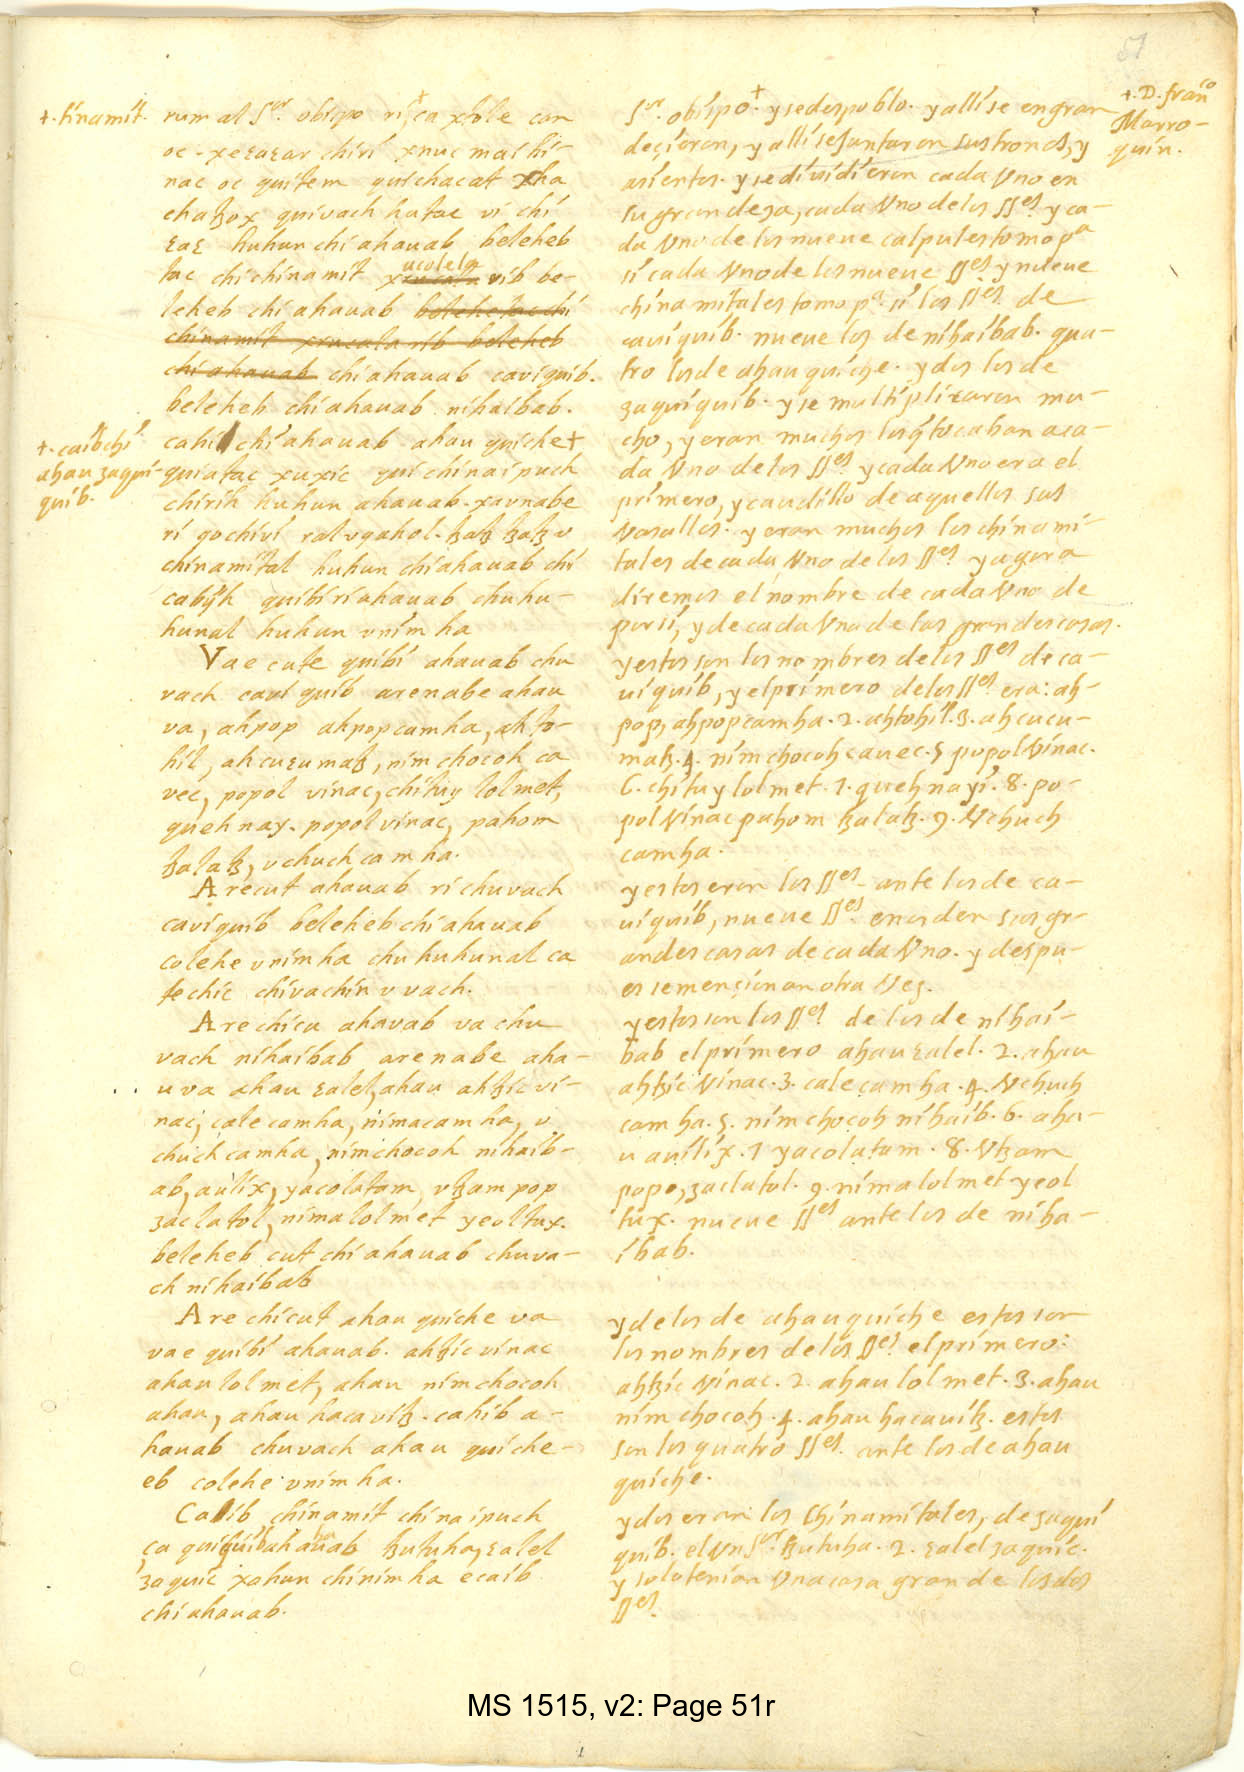 51
+. tinamit.
rum al Sor. obispo ri+ca xtole can
oc. xeɛaɛar chirí xnuc mai hi-
nac oc quitem quichacat xha
chaꜯox quivach hutac vi chí
ɛaɛ huhun chi ahauab beleheb
tac chichinamit xucolela vib be-
leheb chi ahauab belehetac chi
chinamit xrucala rib beleheb
chi ahauab chi ahauab caviquib.
beleheb chi ahauab nihaibab.
+. caib chi
ahau zaqui-
quib.
cahi chi ahauab ahau quiche+
quiatac xuxic qui chinaipuch
chirih huhun ahauab. xavnabe
ri qochivi ral vqahol. ꜯaꜯ ꜯaꜯ v
chinamital huhun chi ahauab chi
cabijh quibi ri ahauab chuhu-
hunal huhun vnim ha
Vae cute quibi ahauab chu
vach cavi quib are nabe ahau
va, ahpop ahpopcamha, ahto-
hil, ahcuɛumaꜯ, nim chocoh ca
vec, popol vinac, chituy lolmet,
queh nay. popol vinac, pahom
ꜯalaꜯ, vchuch camha.
Arecut ahauab ri chuvach
caviquib beleheb chi ahauab
colehe vnimha chu huhunal ca
techic chivachin v vach.
Are chicu ahauab va chu
vach nihaibab are nabe aha-
u va ahau ɛalel, ahau ahꜯic vi-
nac, cale camha, nimacamha, v
chuch camha, nimchocoh nihaib-
ab, aulix, yacolatam, vꜯam pop
zaclatol, nima lolmet yeoltux.
beleheb cut chi ahauab chuva-
ch nihaibab
Are chicut ahau quiche va
vae quibi ahauab. ahꜯic vinac
ahau lolmet, ahau nim chocoh
ahau, ahau hacaviꜯ. cahib a-
hauab chuvach ahau quiche-
eb colehe vnim ha.
Caib chinamit chinaipuch
ça quiquib ahauab ꜯutuha, ɛalel
zaquic xahun chinimha ecaib
chi ahauab.
+. D. franco
Marro-
quin.
Sor. obispo.+ y se despoblo. y alli se engran
decieron, y alli se juntaron sus tronos, y
asientos. y se dividieron cada Vno en
su grandeza, cada Vno de los SSes y ca-
da Vno de los nueue calpules tomo pa
si cada Vno de los nueue SSes y nueue
chinamitales tomo pa. si los SSes. de
cauiquib. nueue los de nihaibab. qua-
tro los de ahau quiche. y dos los de
zaquiquib. y se multiplicaron mu-
cho, y eran muchos los q̃ tocaban a ca-
da Vno de los SSes. y cada Vno era el
primero, y caudillo de aquellos sus
Vasallos. y eran muchos los chinami-
tales de cada Vno de los SSes y agora
diremos el nombre de cada Vno de
por si, y de cada Vna de las grandes casas.
y estos son los nombres de los SSes de ca-
uiquib, y el primero de los SSes era: ah-
pop, ahpopcamha. 2. ahtohil. 3. ahcucu-
maꜯ. 4. nimchocoh cauec. 5 popol Vinac.
6. chituy lolmet. 7. queh nayi. 8. po-
pol Vinac pahom ꜯalaꜯ. 9. Vchuch
camha.
y estos eran los SSes. ante los de ca-
uiquib, nueue SSes. en orden sus gr-
andes casas de cada Vno. y despu-
es se mencionan otra Vez.
y estos son los SSes. de los de nihai-
bab el primero ahau ɛalel. 2. ahau
ahꜯic Vinac. 3. cale camha. 4. Vchuch
camha. 5. nim chocoh nihaib. 6. aha-
u auilix. 7 yacolatam. 8. Vꜯam
pope, zaclatol. 9. nima lolmet yeol
tux. nueue SSes ante los de niha-
ibab.
y de los de ahau quiche estos son
los nombres de los SSes. el primero:
ahꜯic Vinac. 2. ahau lolmet. 3. ahau
nim chocoh. 4. ahau hacauiꜯ. estos
son los quatro SSes. ante los de ahau
quiche.
y dos eran los Chinamitales, de zaqui
quib. el Vn Sor. ꜯutuha. 2. ɛalel zaquic.
y solo tenian Vna casa grande los dos
SSes.
MS 1515, v2: Page 51r